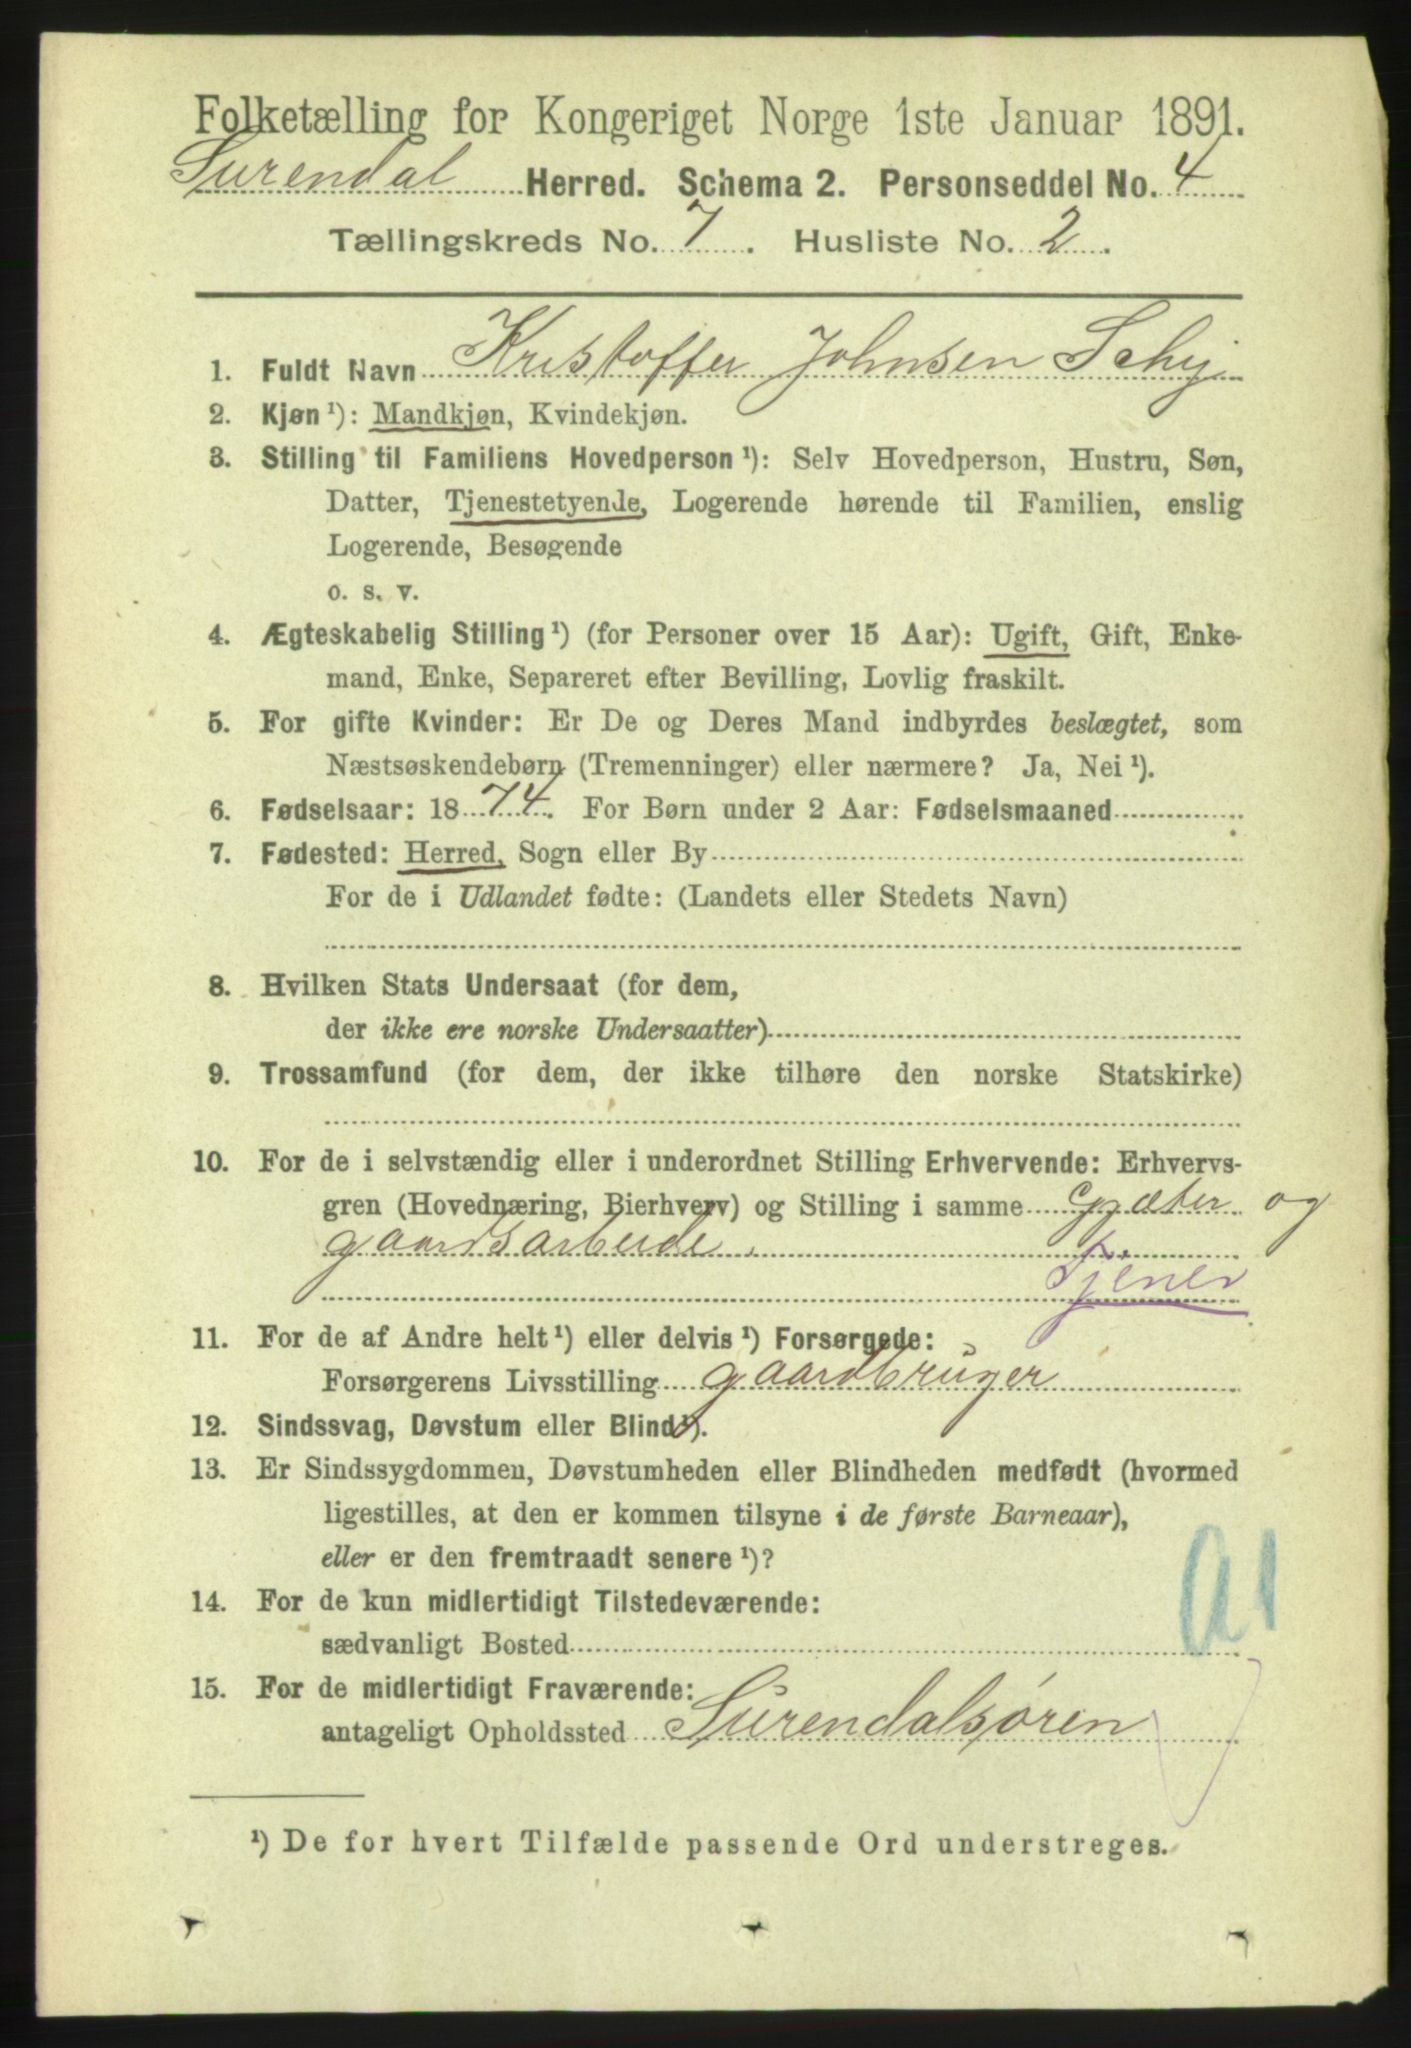 Folketælling for Kongeriget Norge 1ste Januar 1891.
Surendal Herred. Schema 2. Personseddel No. 4
Tællingskreds No. 7. Husliste No. 2.
1. Fuldt Navn Kristoffer Johnsen Schej
2. Kjøn ¹): Mandkjøn, Kvindekjøn.
3. Stilling til Familiens Hovedperson ¹): Selv Hovedperson, Hustru, Søn,
Datter, Tjenestetyende, Logerende hørende til Familien, enslig
Logerende, Besøgende
o. s. v.
4. Ægteskabelig Stilling ¹) (for Personer over 15 Aar): Ugift, Gift, Enke-
mand, Enke, Separeret efter Bevilling, Lovlig fraskilt.
5. For gifte Kvinder: Er De og Deres Mand indbyrdes beslægtet, som
Næstsøskendebørn (Tremenninger) eller nærmere? Ja, Nei ¹).
6. Fødselsaar: 1874. For Børn under 2 Aar: Fødselsmaaned
7. Fødested: Herred, Sogn eller By
For de i Udlandet fødte: (Landets eller Stedets Navn)
8. Hvilken Stats Undersaat (for dem,
der ikke ere norske Undersaatter)
9. Trossamfund (for dem, der ikke tilhøre den norske Statskirke)
10. For de i selvstændig eller i underordnet Stilling Erhvervende: Erhvervs-
gren (Hovednæring, Bierhverv) og Stilling i samme gjæter og
gaardsarbeide.
tjener
11. For de af Andre helt ¹) eller delvis ¹) Forsørgede:
Forsørgerens Livsstilling gaardbruger
12. Sindssvag, Døvstum eller Blind ¹).
13. Er Sindssygdommen, Døvstumheden eller Blindheden medfødt (hvormed
ligestilles, at den er kommen tilsyne i de første Barneaar),
eller er den fremtraadt senere ¹)?
14. For de kun midlertidigt Tilstedeværende:
sædvanligt Bosted
a1
15. For de midlertidigt Fraværende:
antageligt Opholdssted Surendalsøren
¹) De for hvert Tilfælde passende Ord understreges.